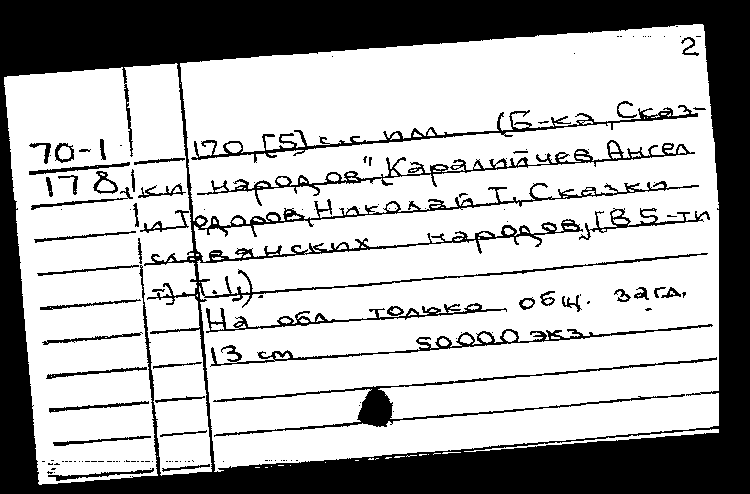 2
70-1 170, [5] с. с илл. (Б-ка „Сказ-
178. ки народов". Каралийчев, Ангел
и Тодоров, Николай Т., Сказки
славянских народов, [В 5-ти
т]. [Т. 1]).
На обл. только общ. загл.
13 cm 50000 экз.